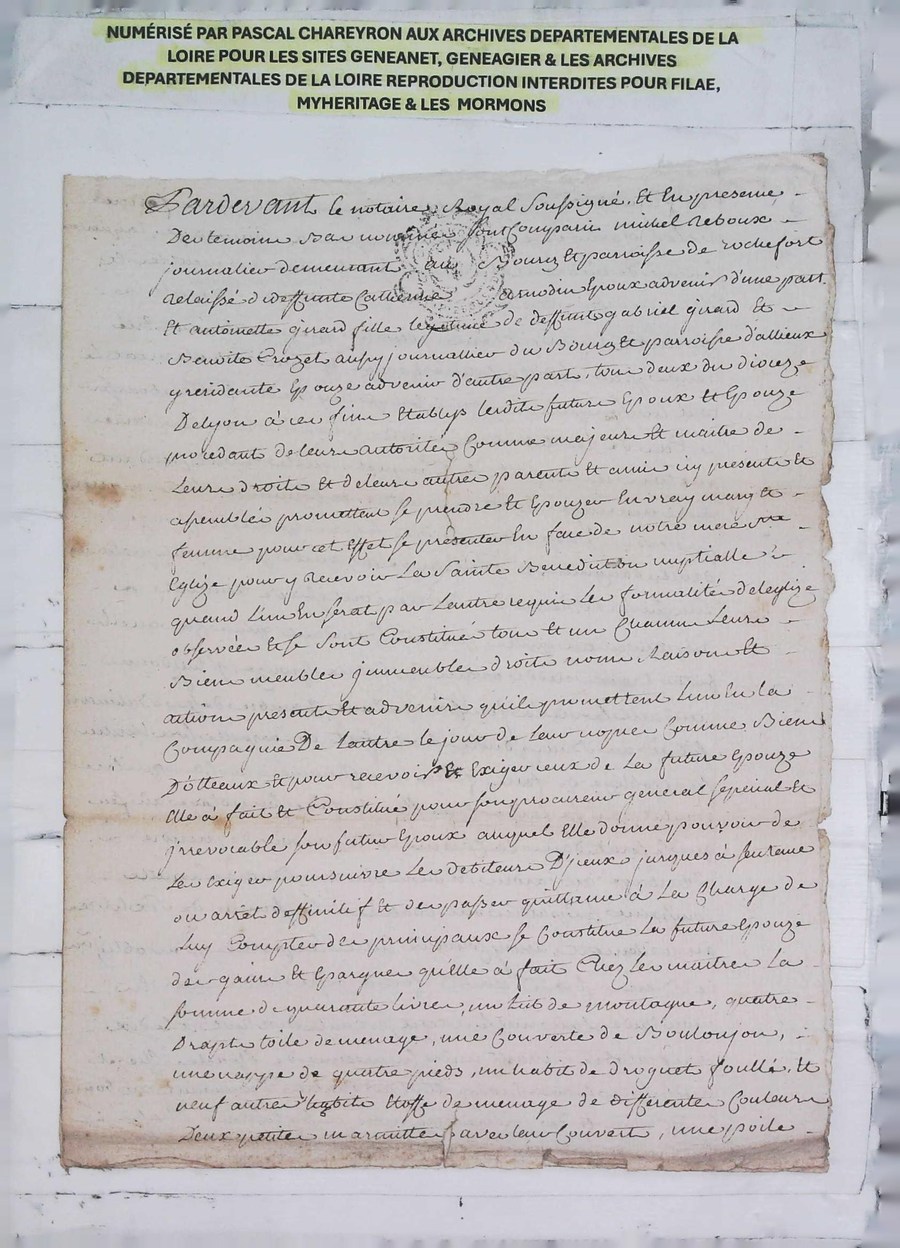 NUMÉRISÉ PAR PASCAL CHAREYRON AUX ARCHIVES DEPARTEMENTALES DE LA
LOIRE POUR LES SITES GENEANET, GENEAGIER & LES ARCHIVES
DEPARTEMENTALES DE LA LOIRE REPRODUCTION INTERDITES POUR FILAE,
MYHERITAGE & LES MORMONS
Pardevant le notaire Royal Soussigné, Et En presence
Des temoins Bas nommés sont Comparus michel Reboux
journalier demeurant au Bourg Et parroisse de rochefort
relaissé de deffunte Catherine Epoux advenir d'une part
Et antoinette girard fille legitime de deffunts gabriel girard Et
Benoite Crozet aussy journallier du Bourg Et parroisse d'allieux
y residante Epouze advenir d'autre part, tous deux du dioceze
De lyon à ces fins Etablys lesdits futurs Epoux Et Epouze
procedants de leurs autorités Comme majeurs Et maitre de
Leurs droits Et de leurs autres parents Et amis icy presents Et
assemblés promettent se prendre Et Epouzer En vray mary Et
femme pour cet Effet se presenter En face de notre mere ste
Eglize pour y Recevoir La Sainte Benediction nuptialle
quand L'un En serat par L'autre requis Les formalités de l'eglize
observées Et se sont Constitués tous Et un Chacuns Leurs
Biens meubles jmmeubles droits noms Raisons Et
actions presents Et advenirs qu'ils promettent L'un En la
Compagnie De L'autre le jour de Leur nopces Comme Biens
Dotteaux Et pour recevoir Et Exiger ceux de La future Epouze
Elle à fait Et Constitué pour son procureur general special Et
jrrevocable son futur Epoux auquel Elle donne pouvoir de
Les Exiger poursuivre Les debiteurs D'jceux jusques à sentence
ou arret deffinitif Et de passer quittance à La Charge de
Luy Compter des principaux se Constitue La future Epouze
de gains Et Epargnes qu'elle à fait Chez Les maitres La
somme de quarante livres, un Lit de montagne, quatre
Draps toile de menage, une Couverte de Bouloujon,
une nappe de quattre pieds, un habit de droguet foullé, Et
neuf autres habits Etoffe de menage de differentes Couleurs
Deux petites marmittes avec leur Couverts, une poile